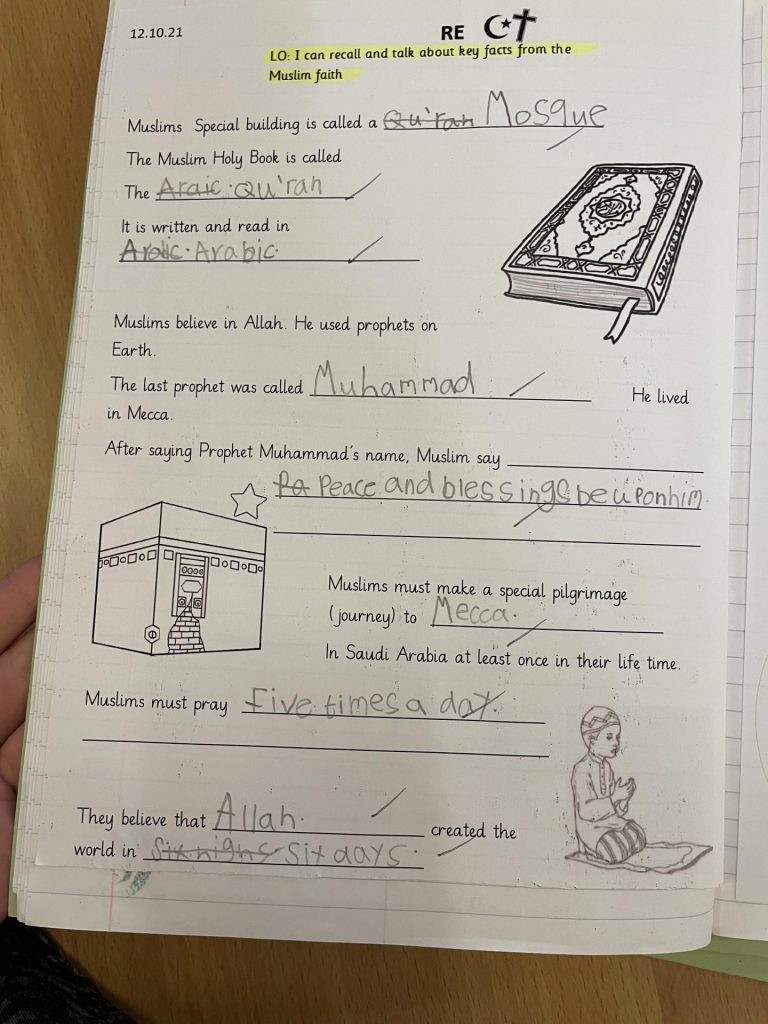 12.10.21
RE
LO: I can recall and talk about key facts from the
Muslim faith
Muslims Special building is called a Qu'ran Mosque
The Muslim Holy Book is called
The Araic. Qu'ran
It is written and read in
Arabic. Arabic.
Muslims believe in Allah. He used prophets on
Earth.
The last prophet was called Muhammad He lived
in Mecca.
After saying Prophet Muhammad's name, Muslim say
Pa Peace and blessings be uponhim.
Muslims must make a special pilgrimage
(journey) to Mecca.
In Saudi Arabia at least once in their life time.
Muslims must pray five times a day.
They believe that Allah. created the
world in Six nighs Six days.